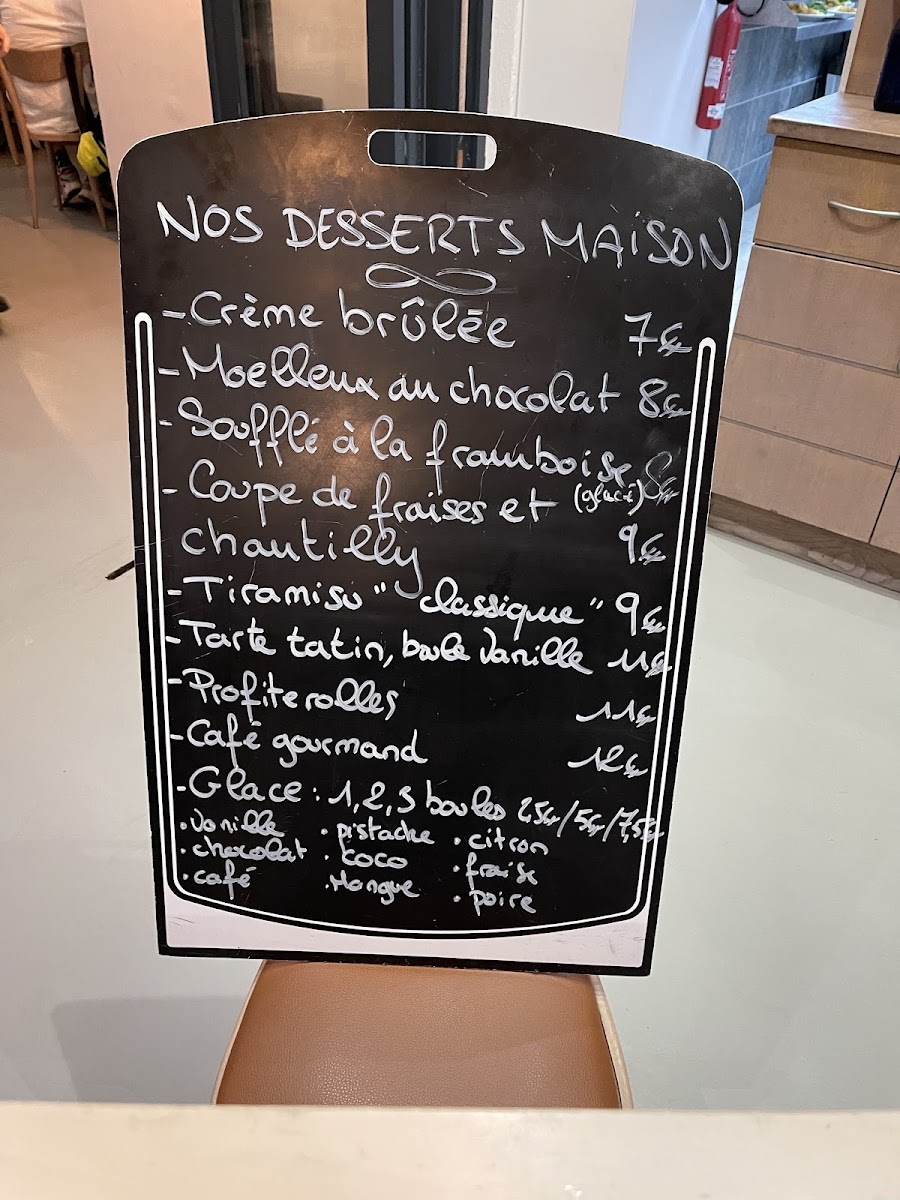 NOS DESSERTS MAISON
- Crème brûlée 7€
- Moelleux au chocolat 8€
- Soufflé à la framboise 8€
- Coupe de fraises et (glacé)
chantilly 9€
- Tiramisu "classique" 9€
- Tarte tatin, boule vanille 11€
- Profiterolles 11€
- Café gourmand 12€
- Glace : 1, 2, 3 boules 2,5€/5€/7,5€
• vanille • pistache • citron
• chocolat • coco • fraise
• café • Mangue • poire